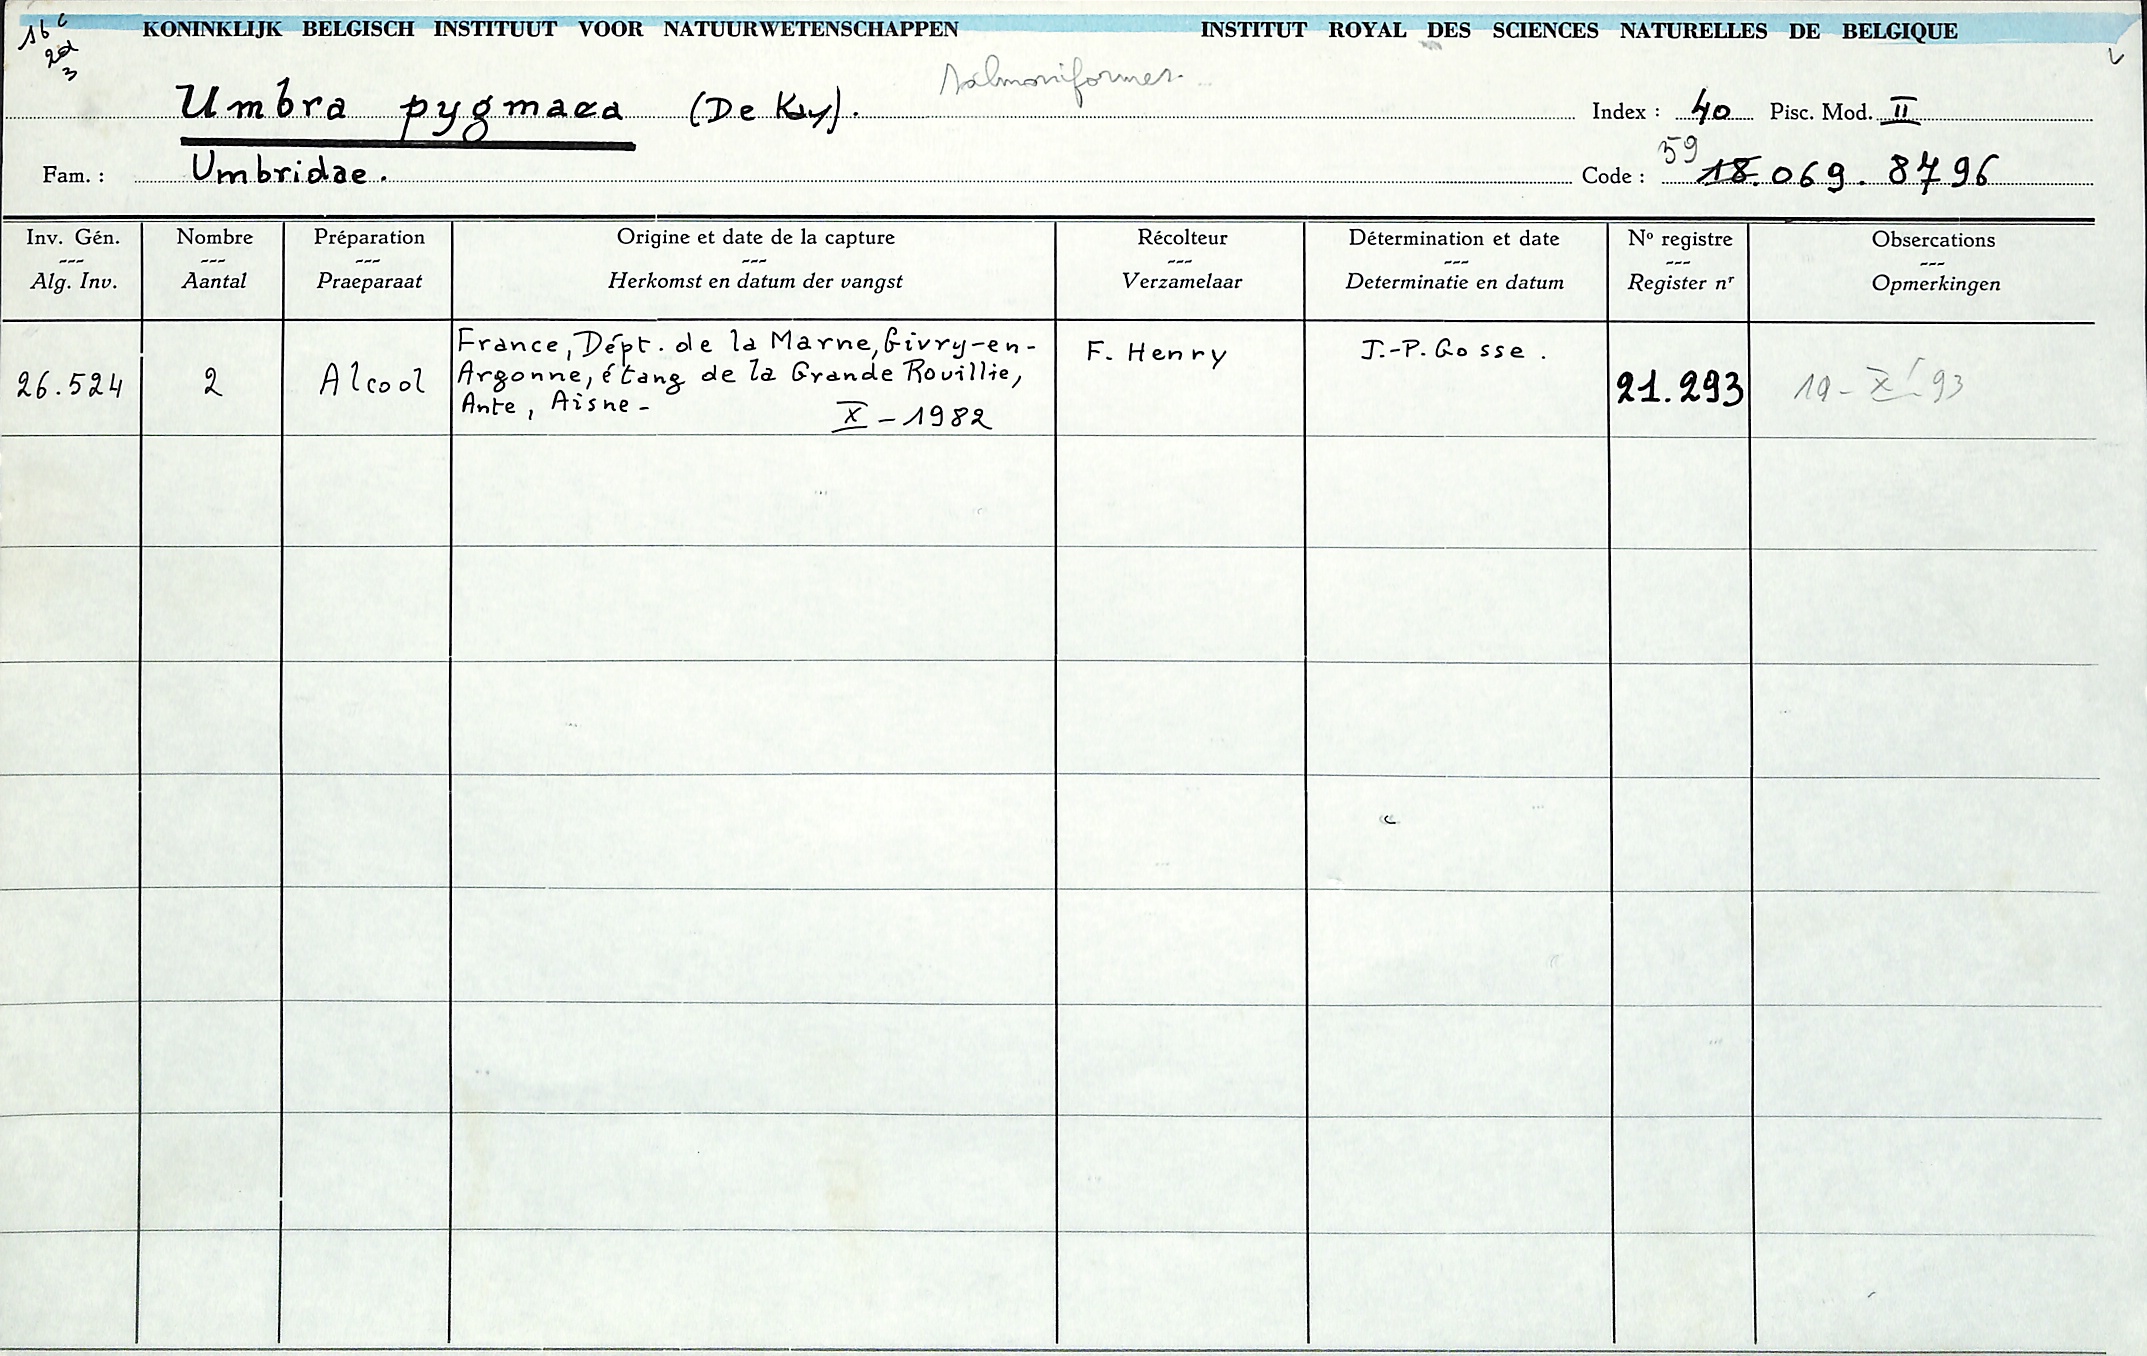 1b c
2d
3
KONINKLIJK BELGISCH INSTITUUT VOOR NATUURWETENSCHAPPEN INSTITUT ROYAL DES SCIENCES NATURELLES DE BELGIQUE
Salmoniformes.
Umbra pygmaea (De Kay). Index : 40 Pisc. Mod. II
59
Fam. : Umbridae. Code : 18.069.8796
Inv. Gén. Nombre Préparation Origine et date de la capture Récolteur Détermination et date No registre Obsercations
Alg. Inv. Aantal Praeparaat Herkomst en datum der vangst Verzamelaar Determinatie en datum Register nr Opmerkingen
France, Dépt. de la Marne, Givry-en-
Argonne, étang de la Grande Rouillie,
Ante, Aisne-
X - 1982
26.524 2 Alcool F. Henry J.-P. Gosse. 21.293